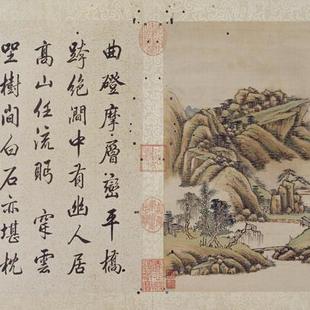 曲磴摩層巒平橋
跨絶澗中有幽人居
高山任流眄穿雲
聖樹間白石亦堪枕